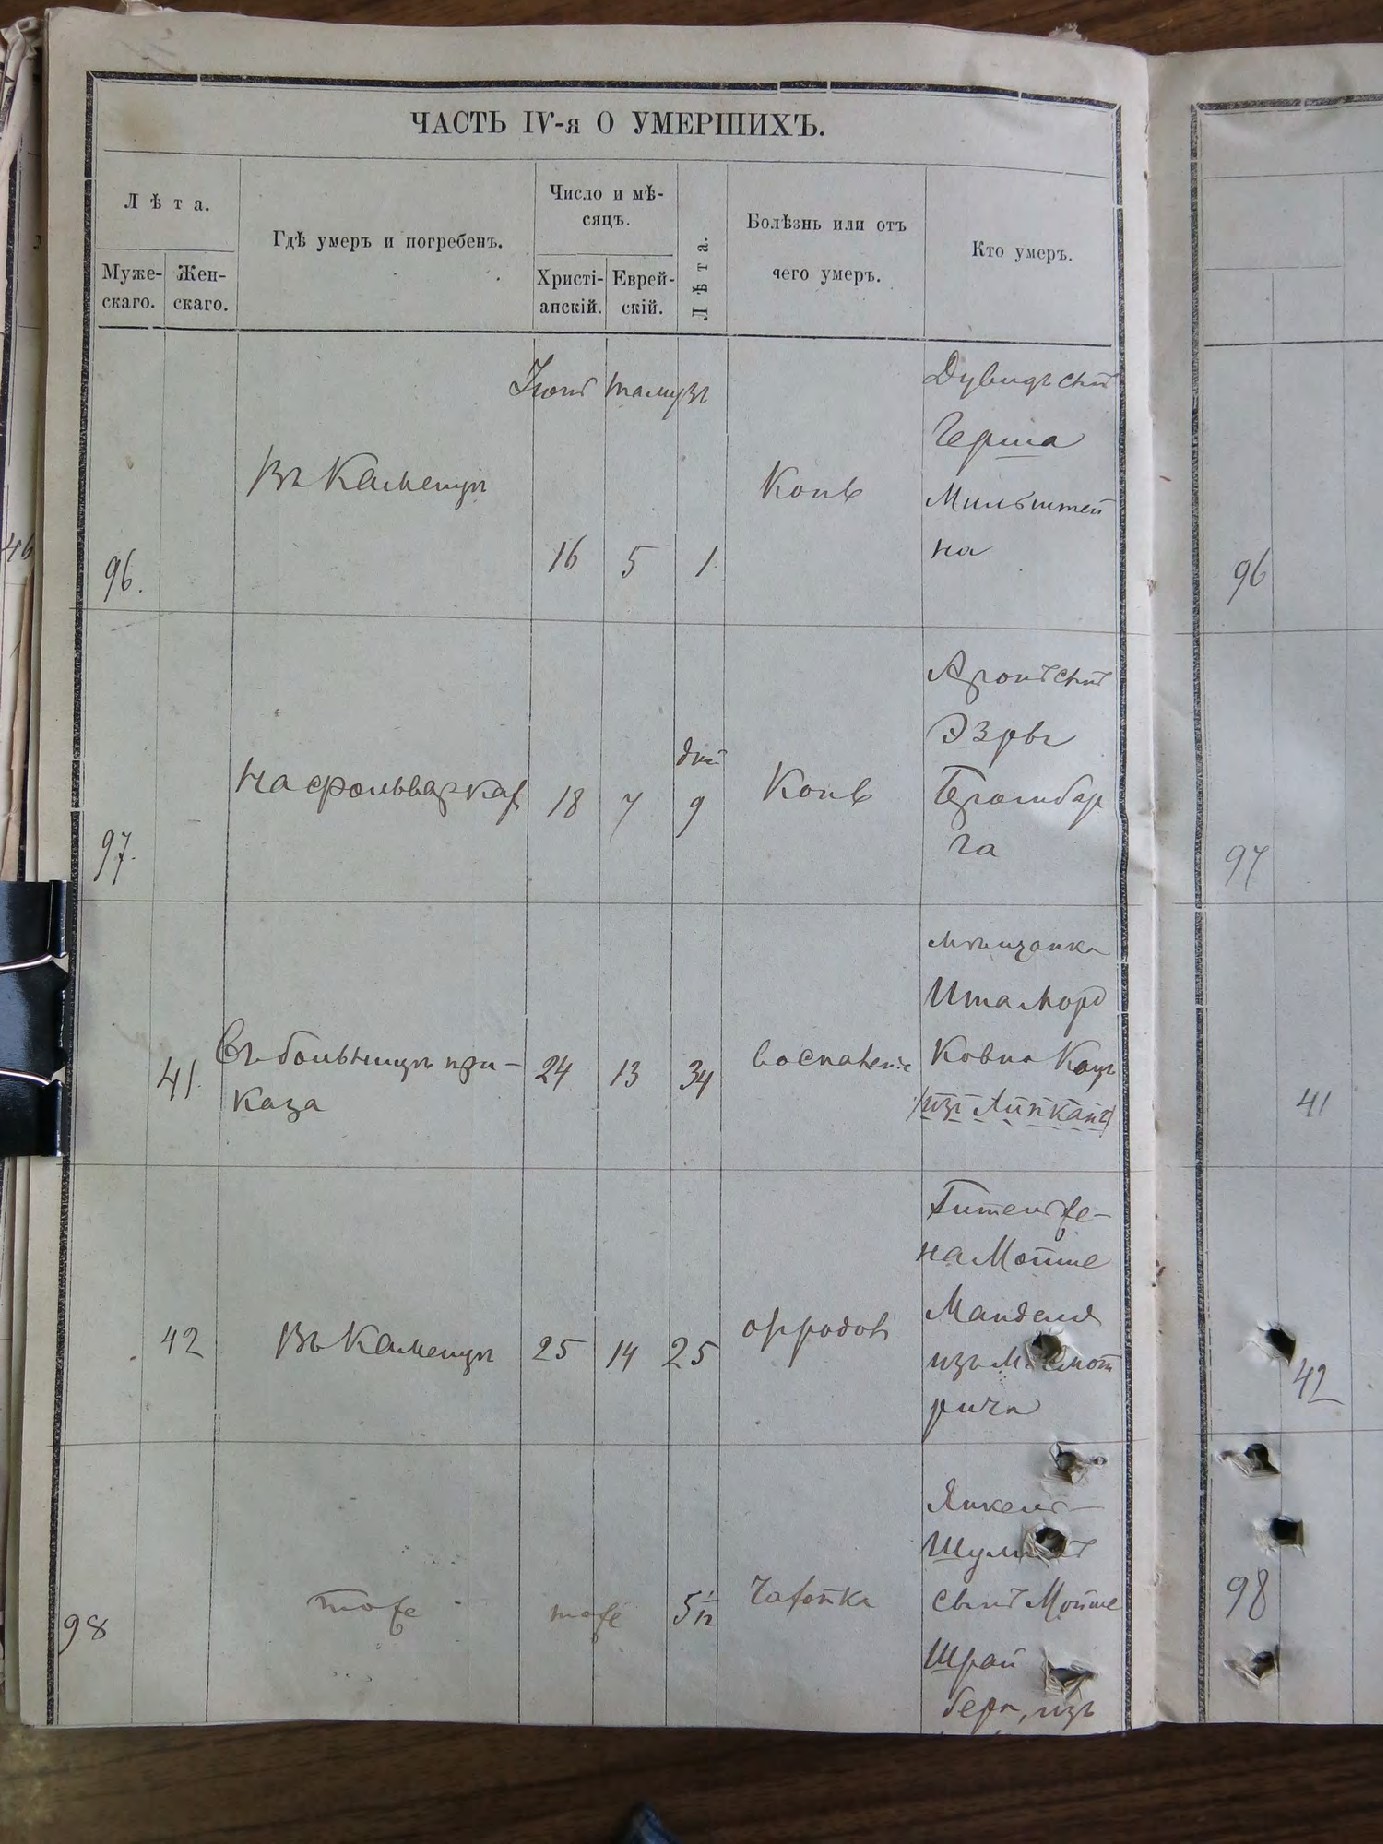 ЧАСТЬ IV-я О УМЕРШИХЪ.
Лѣта.
Муже-
скаго.
Жен-
скаго.
Гдѣ умеръ и погребенъ.
Число и мѣ-
сяцъ.
Христі-
анскій.
Еврей-
скій.
Лѣта.
Болѣзнь или отъ
чего умеръ.
Кто умеръ.
Іюнь Тамузъ
96.
Въ Каменцѣ
16 5 1
Копв
Дувидъ сынъ
Герша
Мильштей
на
97.
На фольваркахъ
18 7
дней
9
Копв
Аронъ сынъ
Эзры
га
41.
Въ больницѣ при-
каза
24 13 34
воспаленіе
мѣщанка
Ита Морд
Ковна Кацъ
/изъ Липканъ/
42
Въ Каменцѣ
25 14 25
отродовъ
Гитель же-
на Мойше
Манделя
изъ М. Смот
рича
98
тоже
тоже
5/12
Чахотка
Янкель-
сынъ Мойше
Шрай
бера, изъ
46
96
97
41
42
98